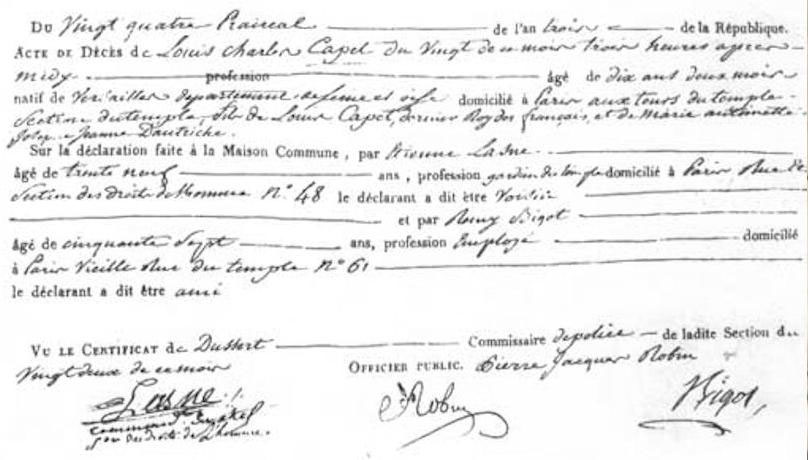 Du Vingt quatre Prairial de l'an trois de la République.
Acte de Décès de Louis Charles Capet du Vingt de ce mois trois heures après
midy profession âgé de dix ans deux mois
natif de Versailles departement de seine et oise domicilié à Paris aux tours du temple
Section du temple, fils de Louis Capet, dernier Roy des français, et de Marie antoinette
Josephe Jeanne Dautriche.
Sur la déclaration faite à la Maison Commune, par Etienne Lasne
âgé de trente neuf ans, profession gardien du temple domicilié à Paris, Rue et
Section des droits de l'homme N° 48 le déclarant a dit être Voisin
et par Remy Bigot
âgé de cinquante Sept ans, profession Employé domicilié
à Paris Vieille Rue du temple N° 61
le déclarant a dit être ami
Vu le Certificat de Dussert Commissaire de police de ladite Section du
Vingt deux de ce mois Officier Public. Pierre Jacques Robin
Lasne Robin Bigot,
Son des droits de l'homme.